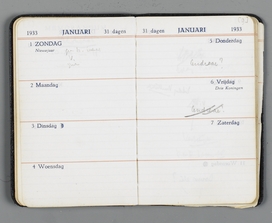 1933 JANUARI 31 dagen
1 ZONDAG
Nieuwjaar
2 Maandag
3 Dinsdag
4 Woensdag
31 dagen JANUARI 1933
5 Donderdag
6 Vrijdag
Drie Koningen
7 Zaterdag